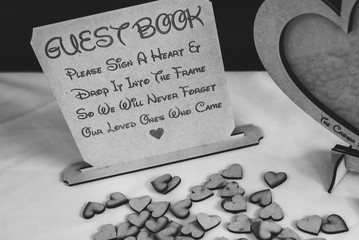 GUEST BOOK
PLEASE SIGN A HEART &
DROP IT INTO THE FRAME
SO WE WILL NEVER FORGET
OUR LOVED ONES WHO CAME
THE